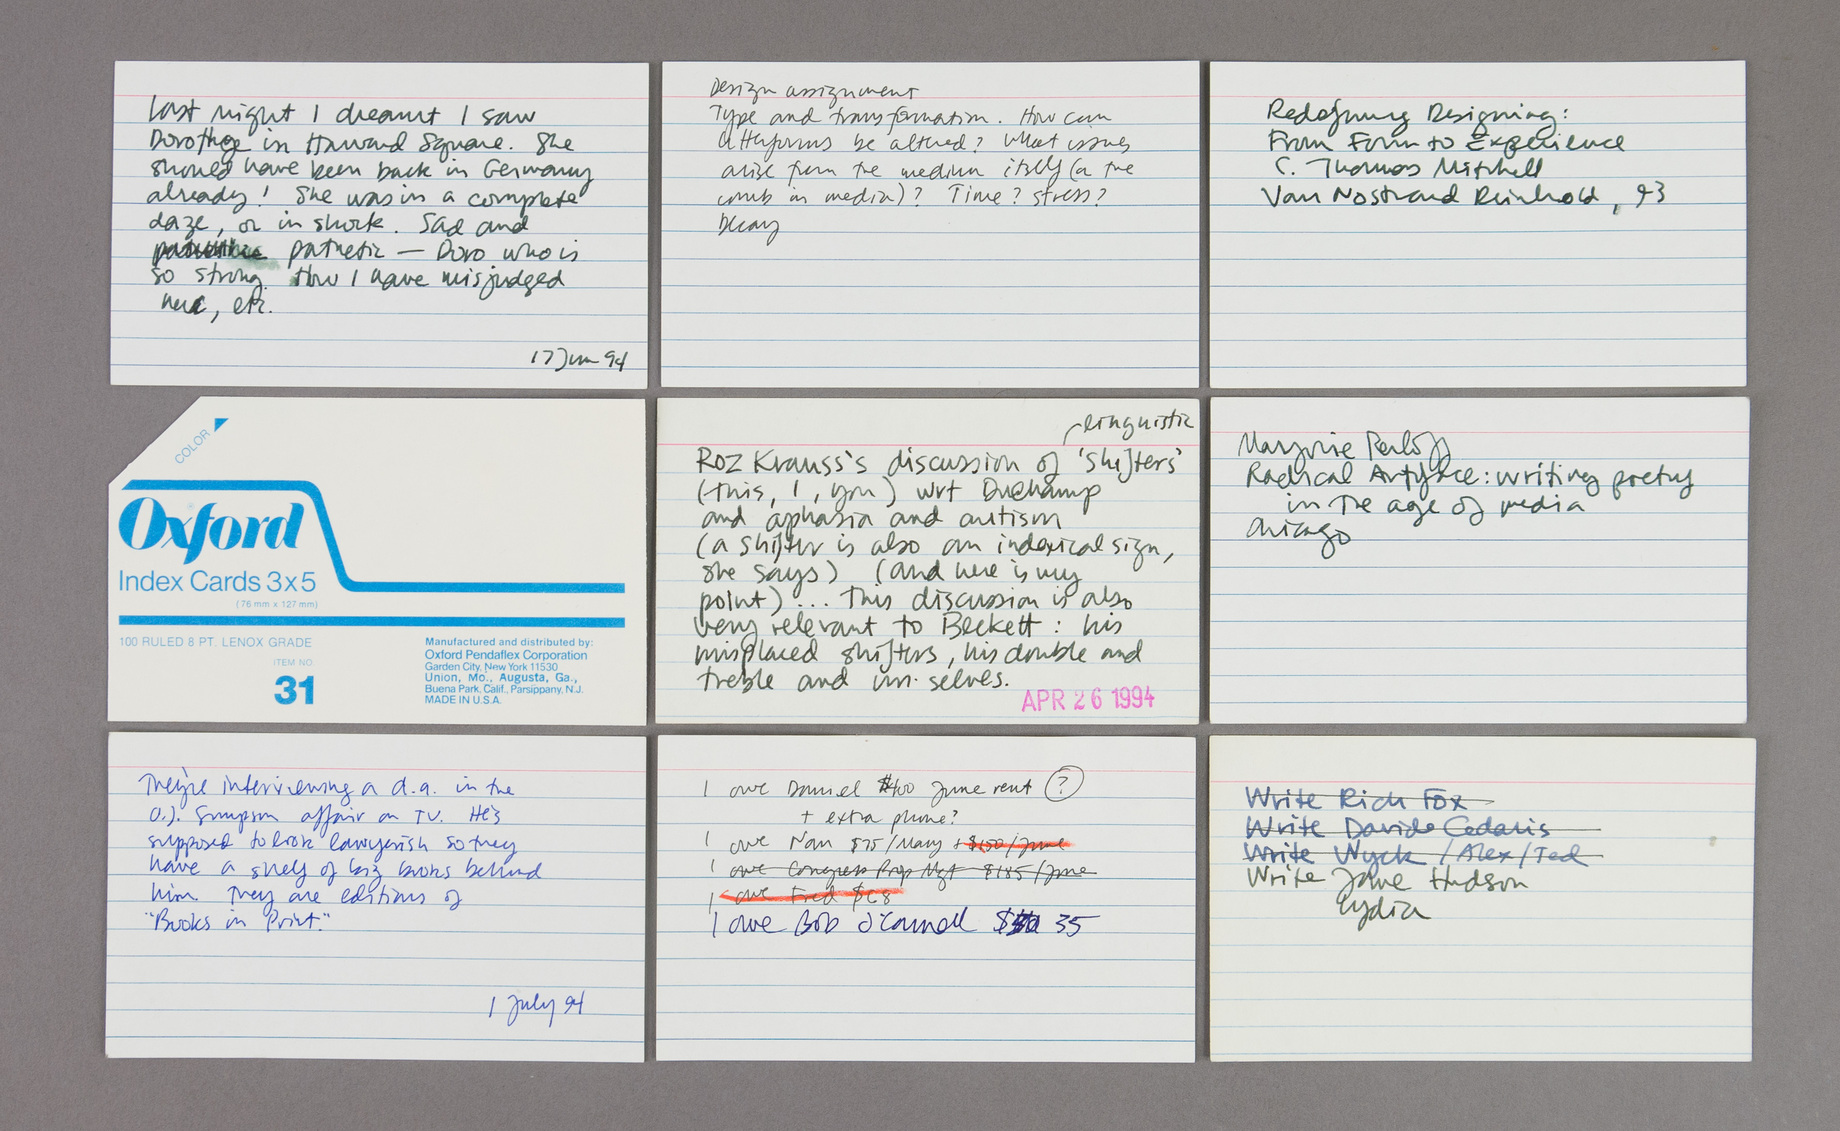 Last night I dreamt I saw
Dorothee in Harvard Square. She
should have been back in Germany
already! She was in a complete
daze, or in shock. Sad and
pathetic — Doro who is
so strong. How I have misjudged
her, etc.
17 Jun 94
Design assignment
Type and transformation. How can
letterforms be altered? What issues
arise from the medium itself (a the
in media)? Time? stress?
Decay
Redefining Designing:
From Form to Experience
C. Thomas Mitchell
Van Nostrand Reinhold, 93
COLOR
Oxford
Index Cards 3x5
(76 mm x 127 mm)
100 RULED 8 PT. LENOX GRADE
ITEM NO.
31
Manufactured and distributed by:
Oxford Pendaflex Corporation
Garden City, New York 11530
Union, Mo., Augusta, Ga.,
Buena Park, Calif., Parsippany, N.J.
MADE IN U.S.A.
linguistic
Roz Krauss's discussion of 'shifters'
(this, I, you) wrt Duchamp
and aphasia and autism
(a shifter is also an indexical sign,
she says) (and here is my
point) ... This discussion is also
very relevant to Beckett: his
misplaced shifters, his double and
treble and un-selves.
APR 26 1994
Marjorie Perloff
Radical Artifice: writing poetry
in the age of media
Chicago
They're interviewing a d.a. in the
O.J. Simpson affair on TV. He's
supposed to look lawyerish so they
have a shelf of big books behind
him. They are editions of
"Books in Print."
1 July 94
I owe Daniel $400 June rent ?
+ extra phone?
I owe Nan $75/May + $150/June
I owe Congress Prop Mgt $185/June
I owe Fred $68
I owe Bob O'Connell $ 35
Write Rich Fox
Write Davide Cedaris
Write Wyck/Alex/Ted
Write Jane Hudson
Lydia